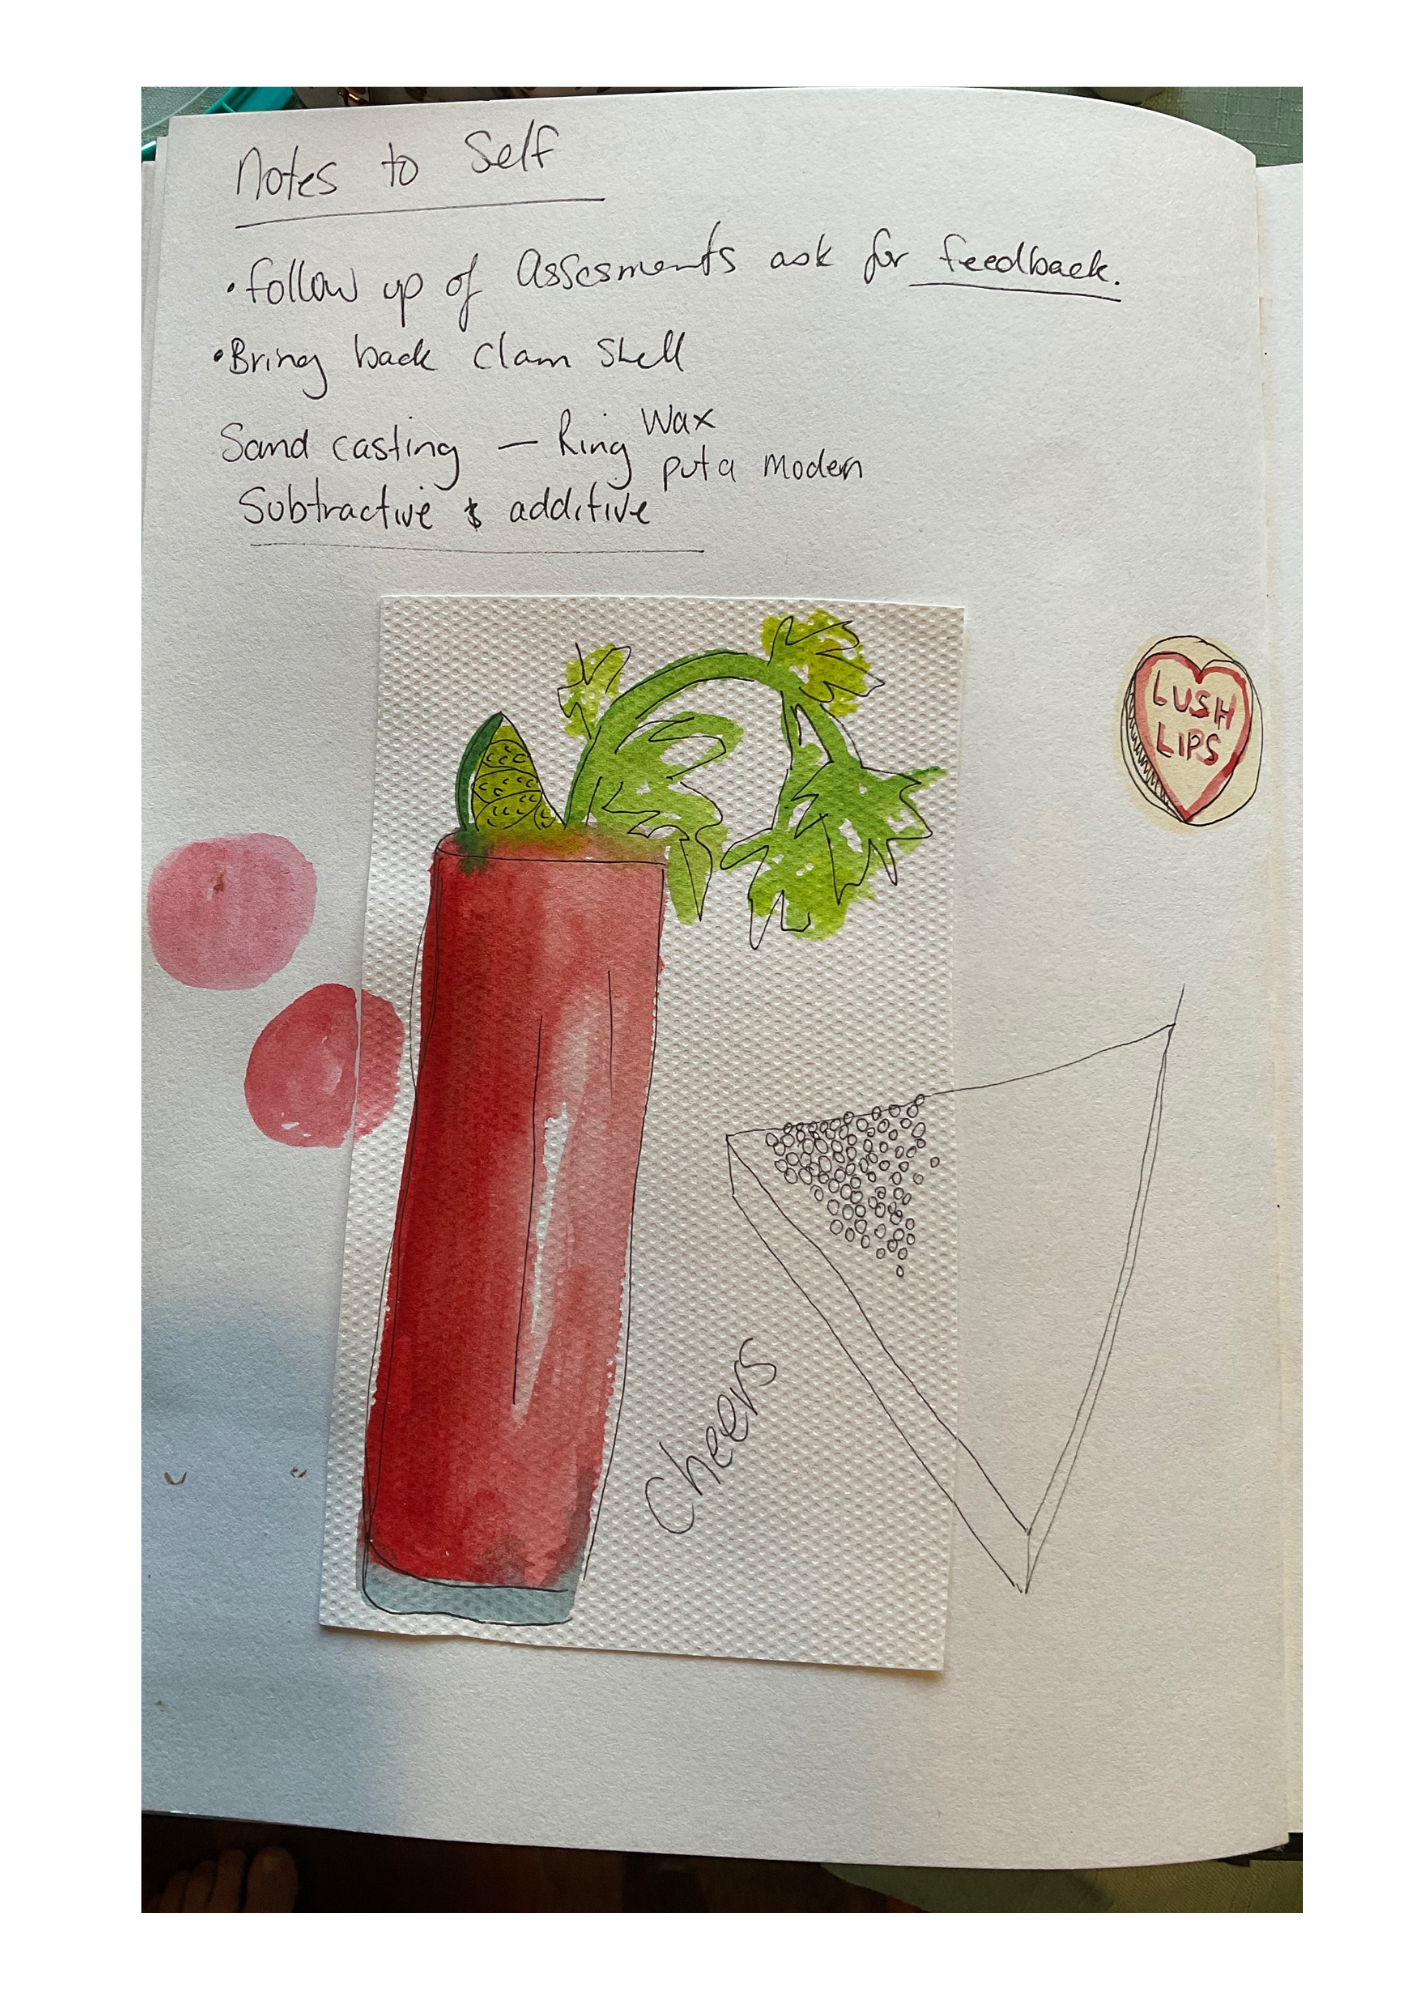 Notes to Self
• follow up of Assesments ask for feedback.
• Bring back clam shell
Sand casting — Ring Wax
put a modern
Subtractive & additive
LUSH
LIPS
Cheers